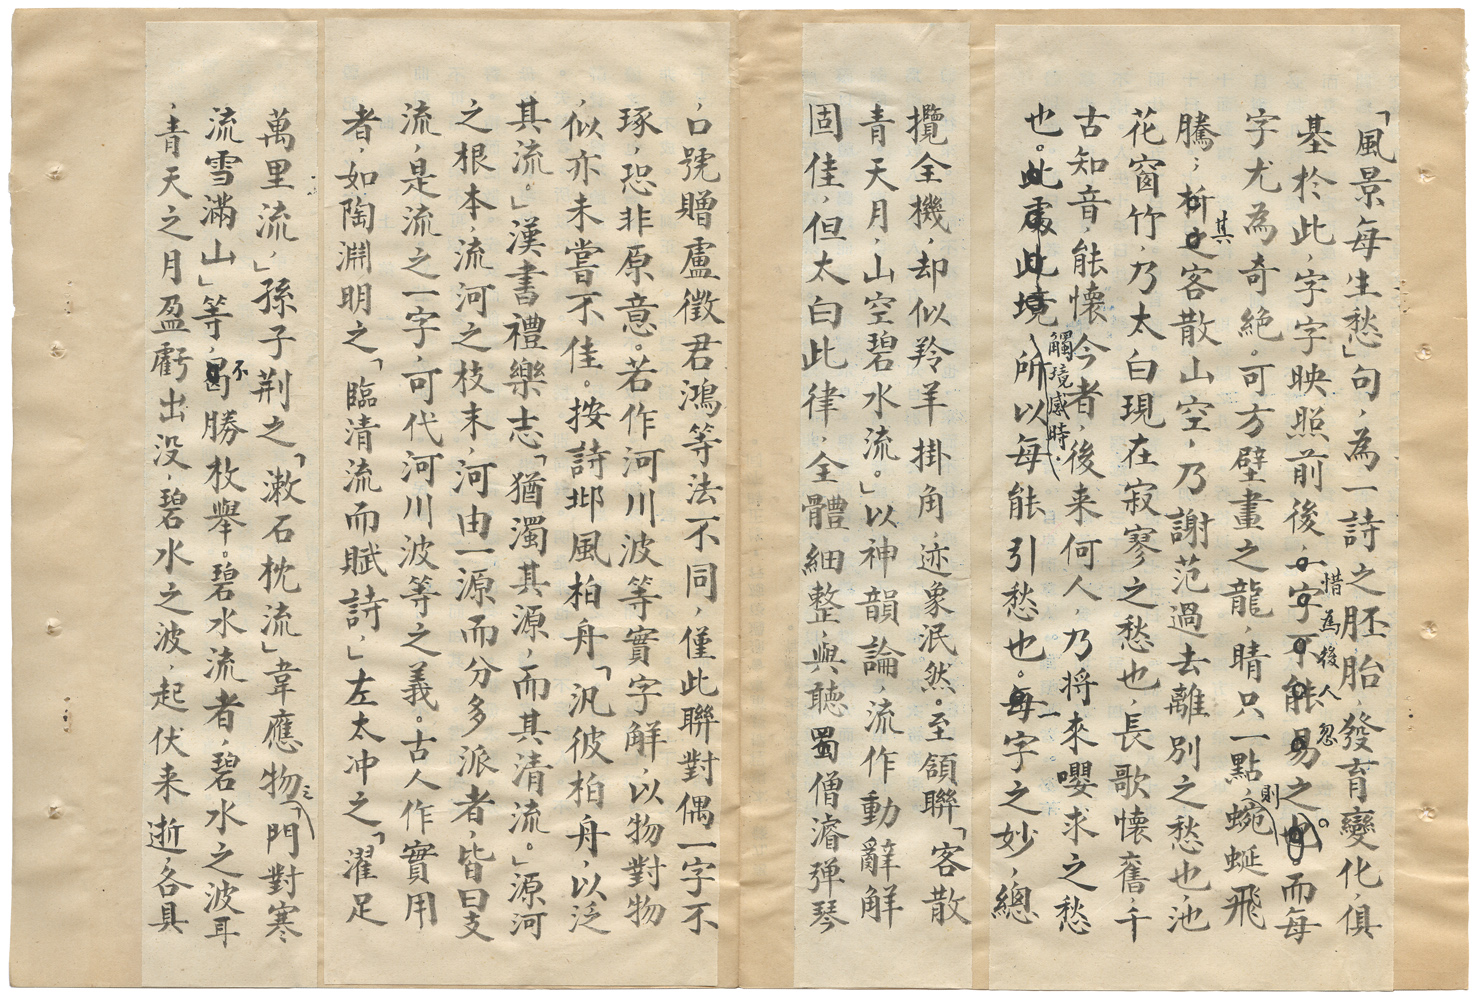 「風景每生愁」句，為一詩之胚胎，發育變化，俱
基於此，字字映照前後，惜為後人忽之。而每
字尤為奇絕。可方壁畫之龍，睛只一點，則蜿蜒飛
騰，析其客散山空，乃謝范過去離別之愁也，池
花窗竹，乃太白現在寂寥之愁也，長歌懷舊，千
古知音，能懷今者，後来何人，乃將來嚶求之愁
也。觸境感時，所以每能引愁也。每一字之妙，總
攬全機，却似羚羊掛角，迹象泯然。至頷聯「客散
青天月，山空碧水流。」以神韻論，流作動辭解
固佳，但太白此律，全體細整，與聽蜀僧濬彈琴
，口號贈盧徵君鴻等法不同，僅此聯對偶一字不
琢，恐非原意。若作河川波等實字解，以物對物
，似亦未嘗不佳。按詩邶風柏舟「汎彼柏舟，以泛
其流。」漢書禮樂志「猶濁其源，而其清流。」源河
之根本，流河之枝末，河由一源而分多派者，皆曰支
流，是流之一字，可代河川波等之義。古人作實用
者，如陶淵明之「臨清流而賦詩，」左太冲之「濯足
萬里流，」孫子荆之「漱石枕流」韋應物之「門對寒
流雪滿山」等，不勝枚舉。碧水流者，碧水之波耳
，青天之月盈虧出没，碧水之波，起伏来逝，各具